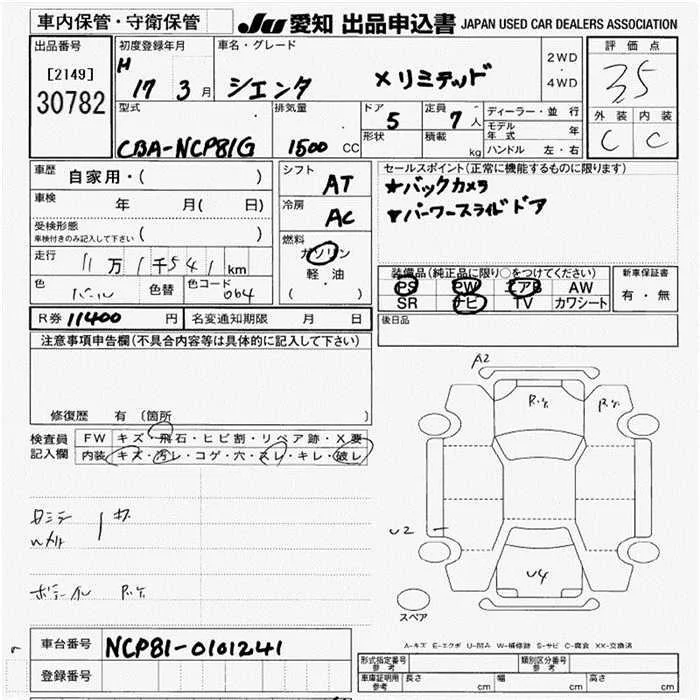 車内保管・守衛保管
JU 愛知 出品申込書 JAPAN USED CAR DEALERS ASSOCIATION
出品番号
[2149]
30782
初度登録年月
H 17 3 月
車名・グレード
シエンタ X リミテッド
2WD
・
4WD
評価点
3.5
外装 内装
C C
型式
CBA-NCP81G
排気量
1500 CC
ドア
5
形状
定員
7 人
積載
kg
ディーラー・並行
モデル年式 年
ハンドル 左・右
車歴 自家用・( )
車検 年 月( 日)
受検形態
車検付きのみ記入して下さい ( )
走行 11万1千541 km
色 パール 色替 色コード 064
シフト
AT
冷房
AC
燃料
ガソリン
軽油
( ・ )
セールスポイント(正常に機能するものに限ります)
★バックカメラ
★パーワースライドドア
装備品(純正品に限り○をつけてください)
PS PW エアB AW
SR ナビ TV カワシート
新車保証書
有・無
R券 11400 円 名変通知期限 月 日
後日品
注意事項申告欄(不具合内容等は具体的に記入して下さい)
修復歴 有 (箇所 )
検査員
記入欄
FW キズ・飛石・ヒビ割・リペア跡・X要
内装 キズ・汚レ・コゲ・穴・スレ・キレ・破レ
A2
U2
U4
スペア
A-キズ E-エクボ U-凹み W-補修跡 S-サビ C-腐食 XX-交換済
車台番号 NCP81-0101241
登録番号
形式指定番号
参考
類別区分番号
参考
車庫証明用
参考
長さ cm 幅 cm 高さ cm